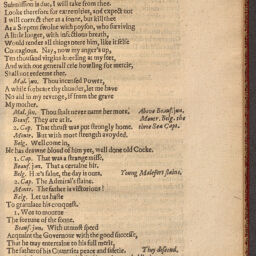 Submission is due, I will take from thee.
Looke therefore for extremities, and expect not
I will correct thee as a sonne, but kill thee
As a Serpent swolne with poyson, who surviving
A little longer, with infectious breath,
Would render all things neere him, like it selfe
Contagious. Nay, now my anger's up,
Ten thousand virgins kneeling at my feet,
And with one generall crie howling for mercie,
Shall not redeeme thee.
Mal. jun. Thou incensed Power,
A while forbeare thy thunder, let me have
No aid in my revenge, if from the grave
My mother.
Mal. sen. Thou shalt never name her more. Above Beauf. jun.
Beauf. They are at it. Montr. Belg. the
2. Cap. That thrust was put strongly home. time Sea Capt.
Montr. But with more strength avoyded.
Belg. Well come in,
He has drawne bloud of him yet, well done old Cocke.
1. Cap. That was a strange misse,
Beauf. jun. That a certaine hit.
Belg. He's false, the day is ours. Young Malefort slaine.
2. Cap. The Admiral's slaine.
Montr. The father is victorious!
Belg. Let us haste
To gratulate his conquest.
1. Wee to mourne
The fortune of the sonne.
Beauf. With utmost speed
Acquaint the Governor with the good successe,
That he may entertaine to his full merit,
The father of his Countries peace and safetie. They descend.